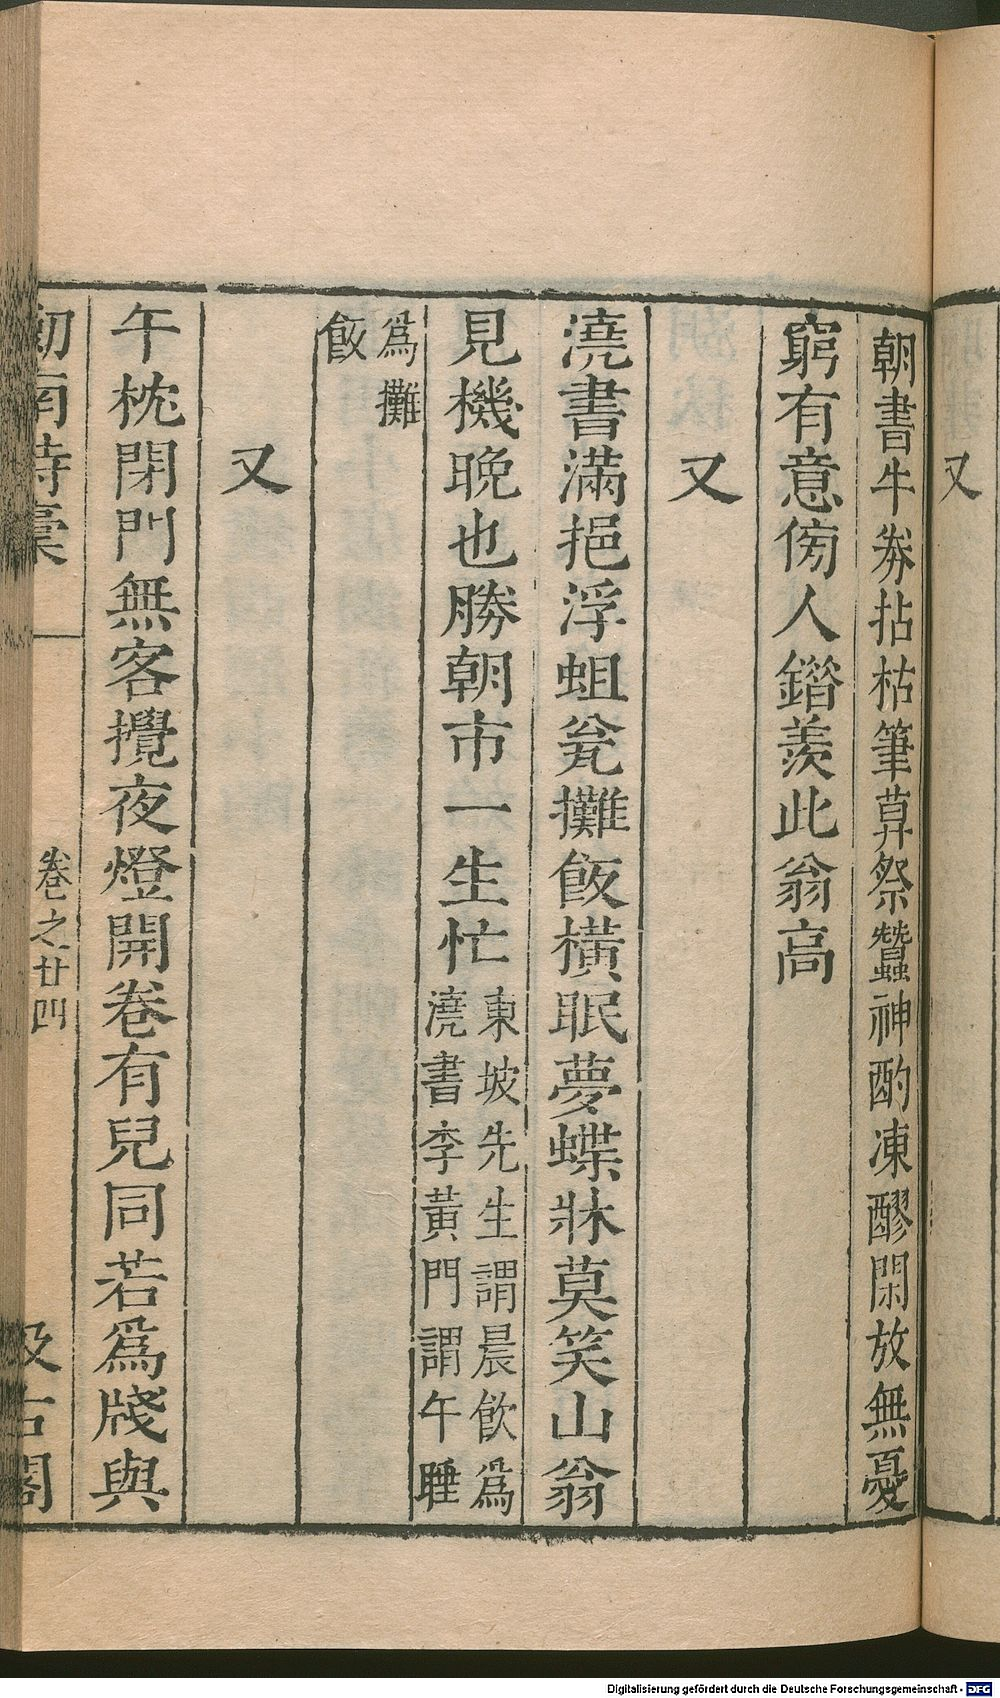 又
朝書牛券拈枯筆莫祭蠶神酌凍醪閑放無憂
窮有意傍人錯羨此翁高
又
澆書滿挹浮蛆瓮攤飯橫眠夢蝶牀莫笑山翁
見機晚也勝朝市一生忙
東坡先生謂晨飲為
澆書李黃門謂午睡
為攤
飯
又
午枕閉門無客攪夜燈開卷有兒同若為牋與
劒南詩稾
卷之廿四
汲古閣
Digitalisierung gefördert durch die Deutsche Forschungsgemeinschaft - DFG